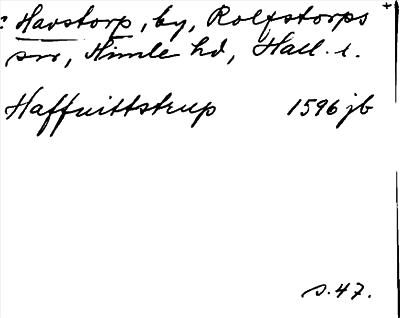 : Havstorp, by, Rolfstorps +
sn, Himle hd, Hall. l.
Haffuittstrup 1596 jb
s. 47.